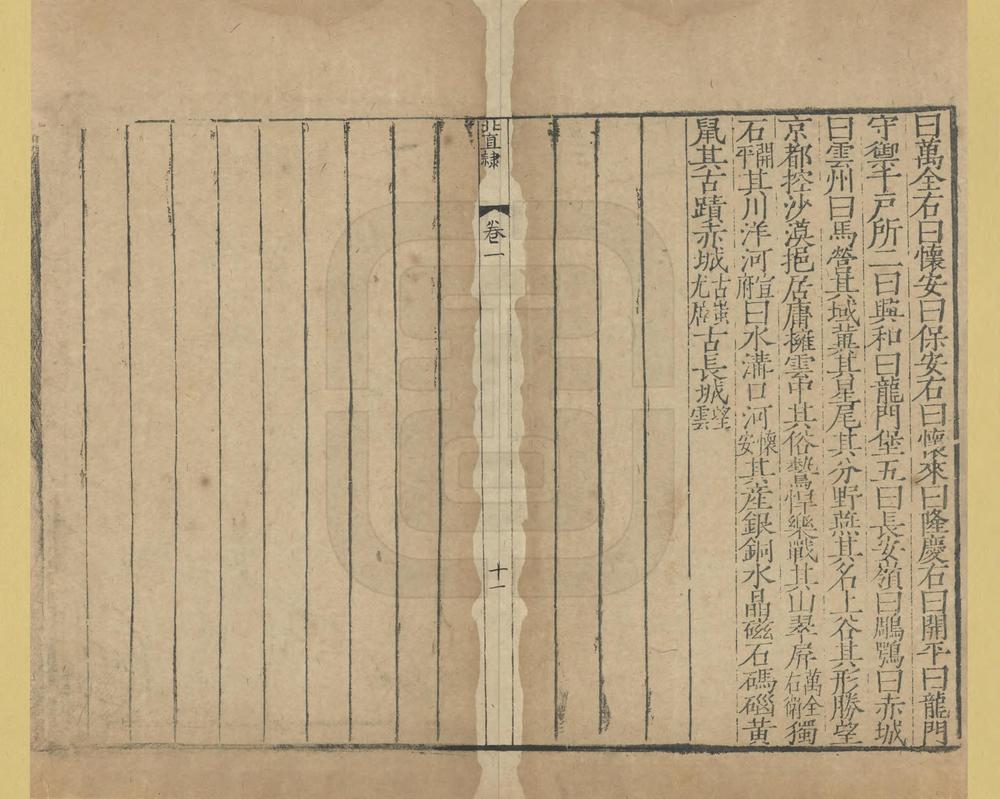 曰萬全右曰懷安曰保安右曰懷來曰隆慶右曰開平曰龍門
守禦千戶所二曰興和曰龍門堡五曰長安嶺曰鵰鶚曰赤城
曰雲州曰馬營其域冀其星尾其分野燕其名上谷其形勝望
京都控沙漠挹居庸擁雲中其俗鷙悍樂戰其山翠屏萬全右衛獨
石開平其川洋河宣府曰水溝口河懷安其產銀銅水晶磁石碼碯黃
鼠其古蹟赤城古蚩尤居古長城望雲
北直隸
卷一
十一